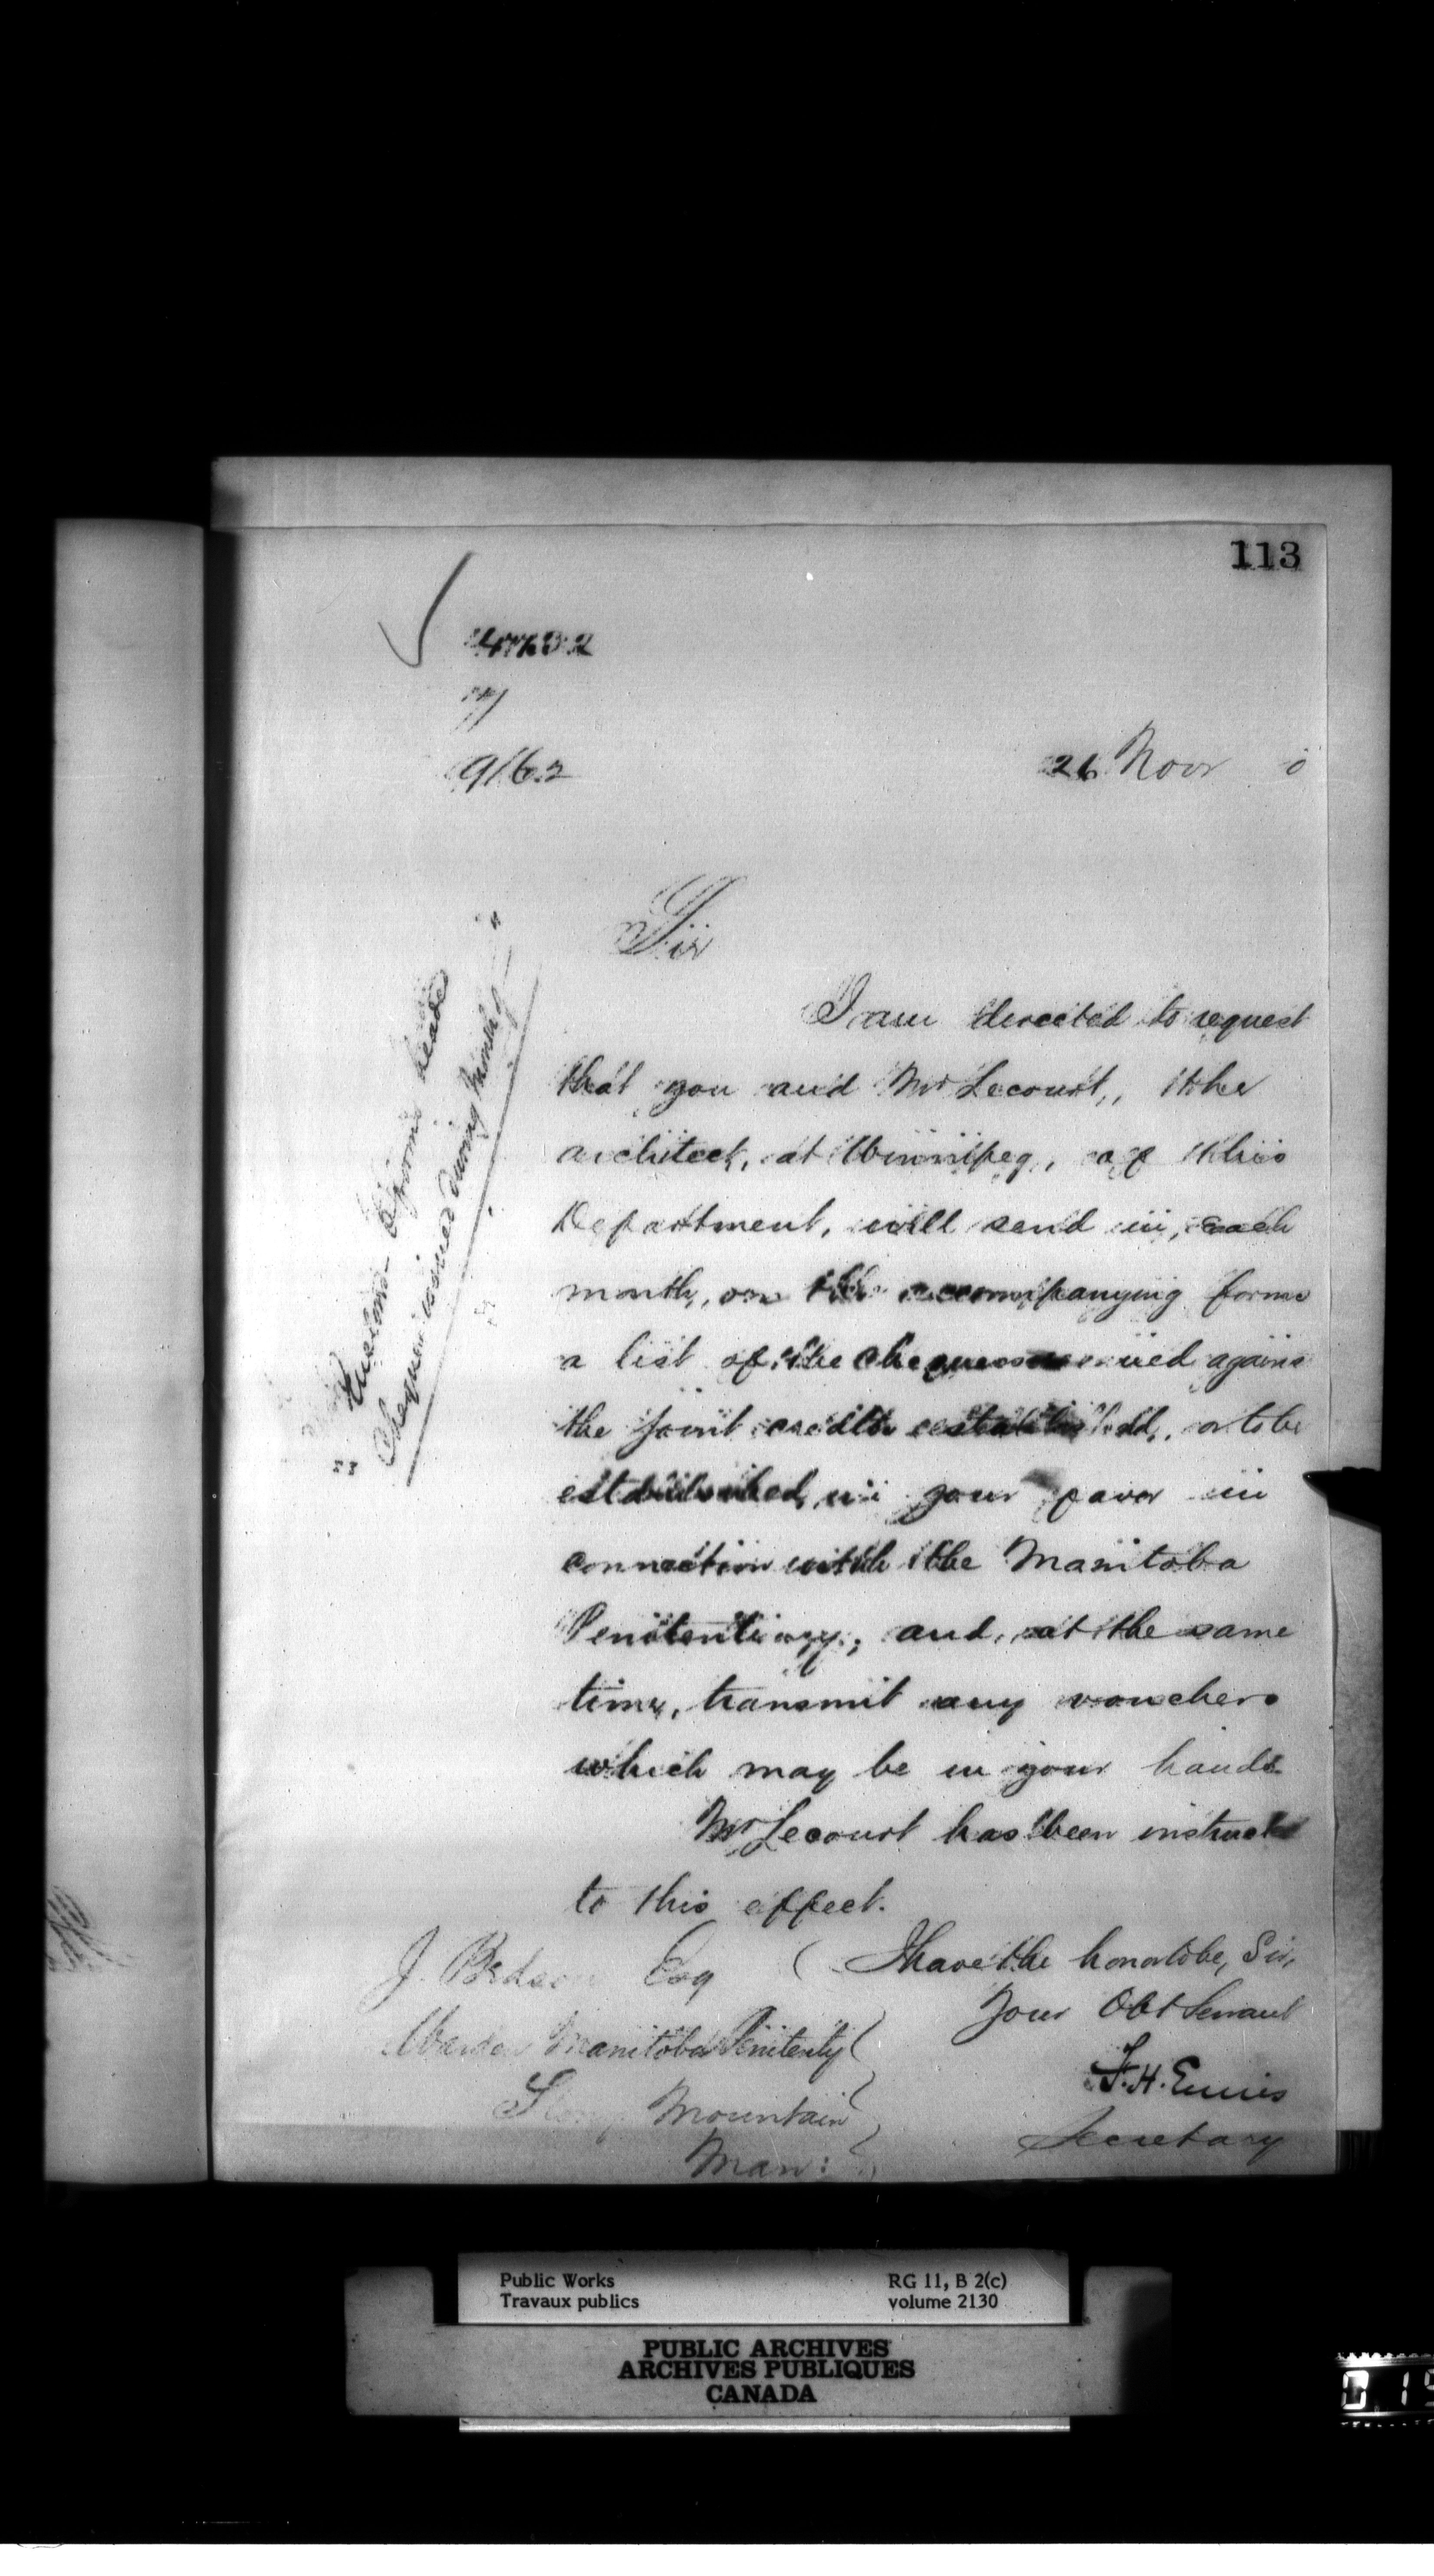 113
9162
26 Novr 0
Sir
I am directed to request
that you and Mr Lecourt, the
architect, at Winnipeg, of this
Department, will send in, each
month, on the accompanying forms
a list of the cheques issued agains
the joint credits established, or to be
established, in your favor in
connection with the Manitoba
Penitentiary, and, at the same
time, transmit any vouchers
which may be in your hands
Mr Lecourt has been instruct
to this effect.
I have the honor to be, Sir,
Your Obt Servant
F. H. Ennis
Secretary
J. Bedson Esq
Warden Manitoba Penitenty
Stony Mountain
Man:
forms headed
Cheques issued during
Public Works
Travaux publics
RG 11, B 2(c)
volume 2130
PUBLIC ARCHIVES
ARCHIVES PUBLIQUES
CANADA